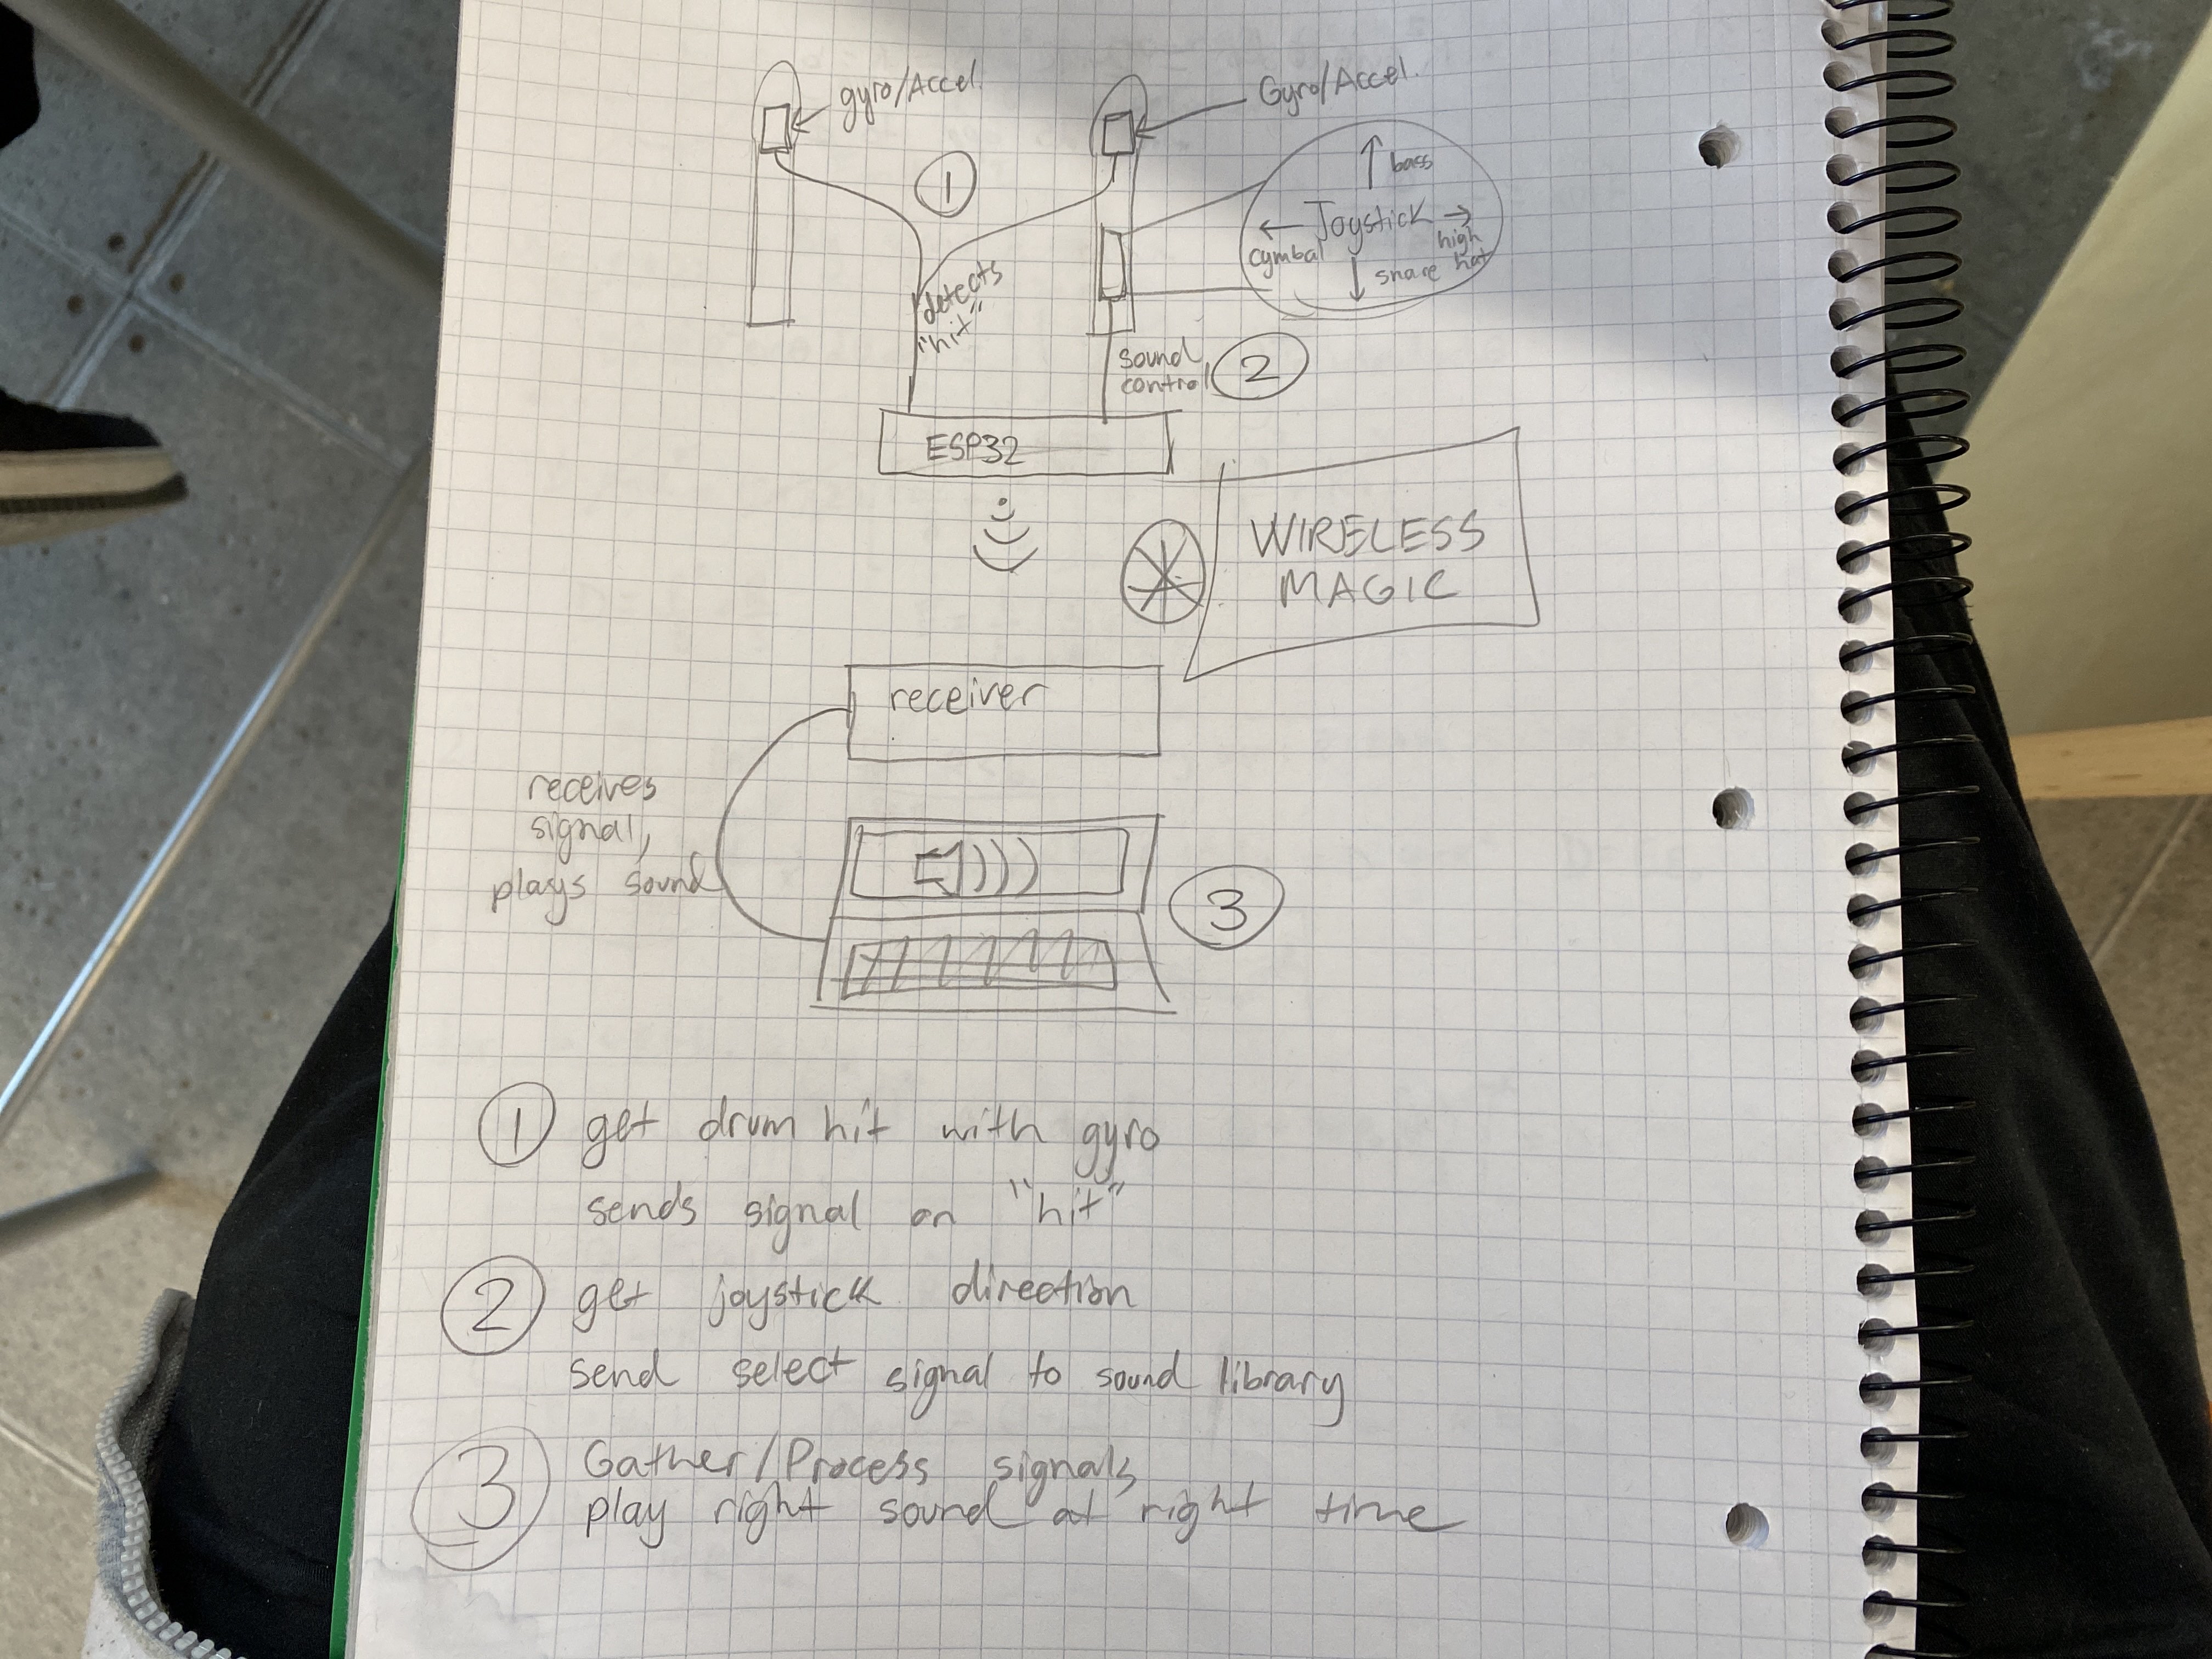 gyro/Accel.
Gyro/Accel.
1
bass
Joystick
cymbal
high
hat
snare
detects
"hit"
sound
control
2
ESP32
WIRELESS
MAGIC
receiver
receives
signal,
plays sound
3
1 get drum hit with gyro
sends signal on "hit"
2 get joystick direction
send select signal to sound library
3 Gather/Process signals,
play right sound at right time